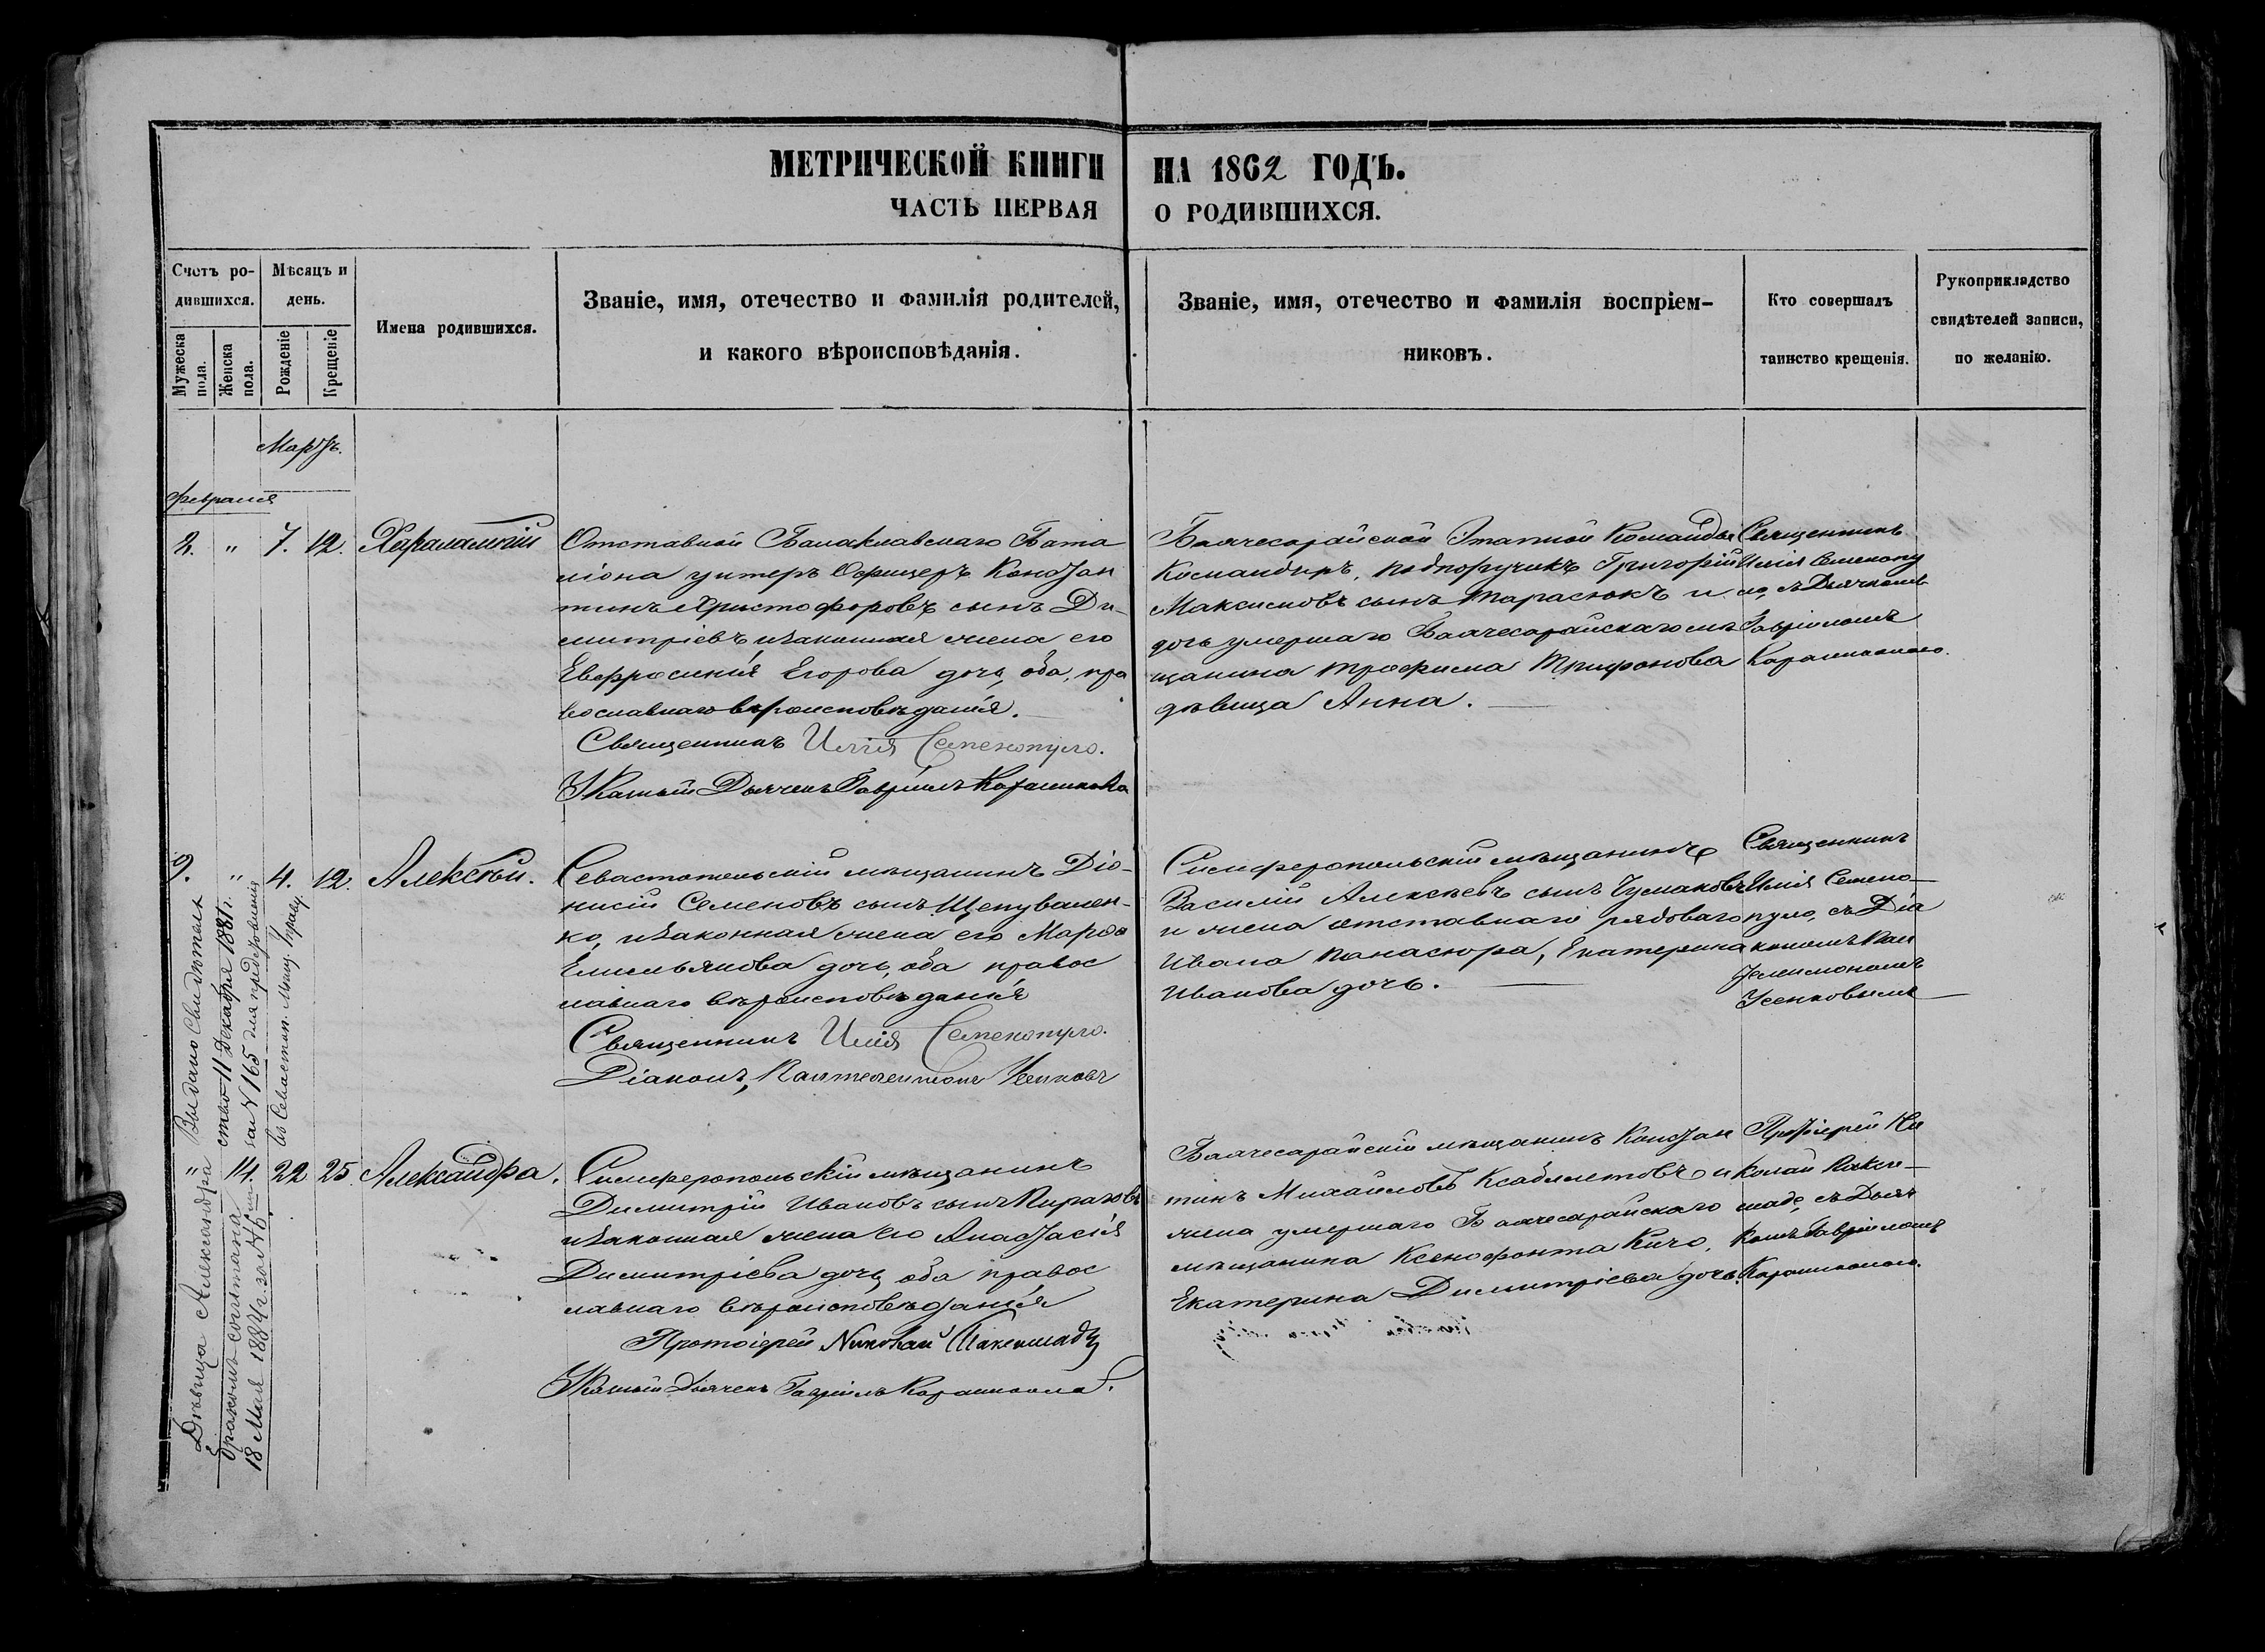 МЕТРИЧЕСКОЙ КНИГИ НА 1862 ГОДЪ.
ЧАСТЬ ПЕРВАЯ О РОДИВШИХСЯ.
Счетъ ро-
дившихся.
Мужеска
пола.
Женска
пола.
Мѣсяцъ и
день.
Рожденіе
Крещеніе
Имена родившихся.
Званіе, имя, отечество и фамилія родителей,
и какого вѣроисповѣданія.
Званіе, имя, отечество и фамилія воспріем-
никовъ.
Кто совершалъ
таинство крещенія.
Рукоприкладство
свидѣтелей записи,
по желанію.
Мартъ.
Февраля
8. " 7. 12. Харалампій
Отставной Балаклавскаго Бата
ліона унтеръ Офицеръ Констан
тинъ Христофоровъ сынъ Ди-
митріевъ и законная жена его
Евфросинія Егорова дочь, оба, пра
вославнаго вѣроисповѣданія.
Священникъ Илія Семенопуло.
Дьячекъ Гавріилъ
Бахчесарайской Этапной Команды
Командиръ, подпоручикъ Григорій
Максимовъ сынъ Тарасюкъ и
дочь умершаго Бахчесарайскаго мѣ
щанина Трофима Трифонова
дѣвица Анна.
Священникъ
Илія Семенопу
ло, съ Дьячкомъ
Гавріиломъ
9. " 4. 12. Алексѣй.
Севастопольскій мѣщанинъ Діо-
нисій Семеновъ сынъ Щепувален-
ко, и законная жена его Марѳа
Емельянова дочь, оба правос
лавнаго вѣроисповѣданія
Священникъ Илія Семенопуло.
Діаконъ, Пантелеимонъ Усенковъ
Симферопольскій мѣщанинъ
Василій Алексѣевъ сынъ Чумаковъ
и жена отставнаго рядоваго
Ивана Панасюра, Екатерина
Иванова дочь.
Священникъ
Илія Семено-
пуло, съ Діа
кономъ Пан
телеимономъ
Усенковымъ
Выдано Свидѣтель
ство 11 Декабря 1881 г.
за № 165 для предъявленія
въ Севастоп. Мѣщ. Управу
" 14. 22 25 Александра.
Симферопольскій мѣщанинъ
Димитрій Ивановъ сынъ Пираговъ
и законная жена его Анастасія
Димитріева дочь, оба правос
лавнаго вѣроисповѣданія
Протоіерей Николай
Дьячекъ Гавріилъ
Бахчесарайскій мѣщанинъ Констан
тинъ Михайловъ и
жена умершаго Бахчесарайскаго
мѣщанина Ксенофонта Кичо,
Екатерина Димитріева дочь.
Протіерей Ни
колай
съ Дьяч
комъ Гавріиломъ
Дѣвица Александра
бракомъ сочетана
18 Мая 1884 г. за № 6